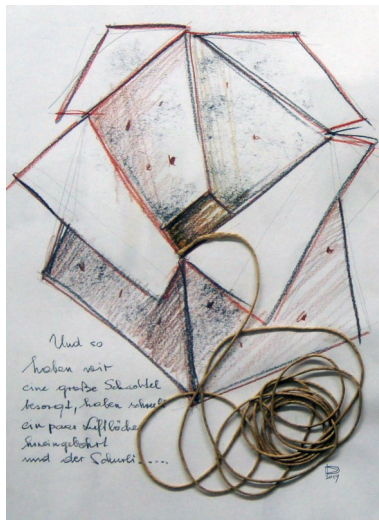 Und so
haben wir
eine große Schachtel
besorgt, haben schnell
ein paar Luftlöcher
hineingebohrt
und der Schurli.....
2019